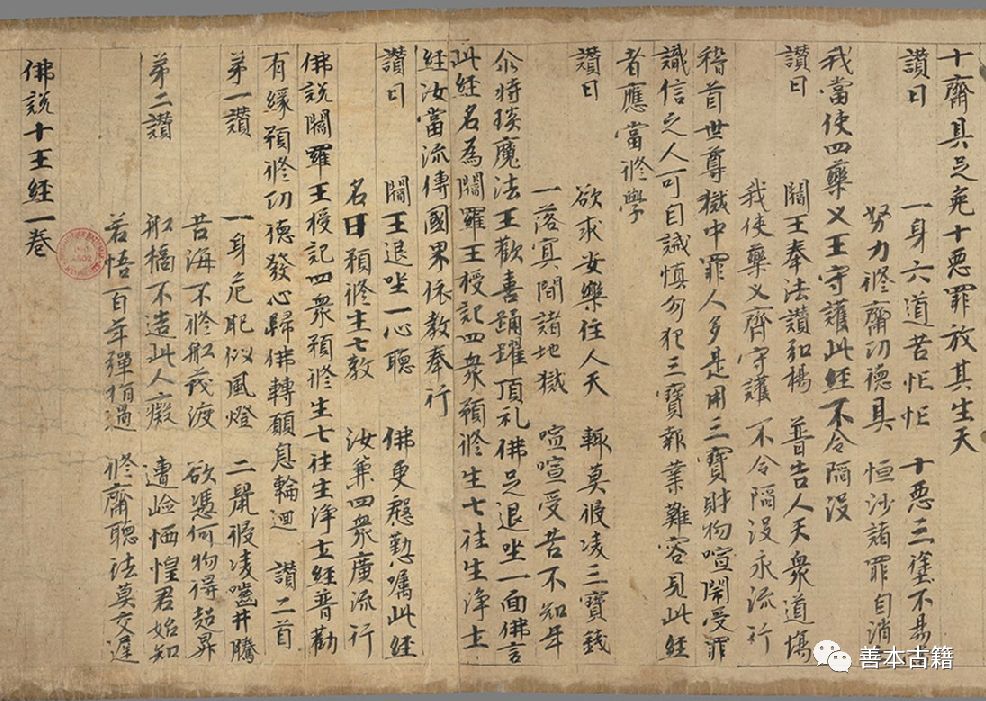 十齋具足免十惡罪放其生天
讚曰 一身六道苦忙忙 十惡三塗不易
努力修齋功德具 恒沙諸罪自消
我當使四藥叉王守護此經不令陷没
讚曰 閻王奉法讚弘揚 普告人天衆道場
我使藥叉齊守護 不令陷没永流行
稽首世尊獄中罪人多是用三寶財物喧鬧受罪
識信之人可自誡慎勿犯三寶報業難容見此經
者應當修學
讚曰 欲求安樂住人天 輒莫侵凌三寶錢
一落冥間諸地獄 喧喧受苦不知年
尒時琰魔法王歡喜踊躍頂礼佛足退坐一面佛言
此經名為閻羅王授記四衆預修生七往生淨土
經汝當流傳國界依教奉行
讚曰 閻王退坐一心聽 佛更慇懃囑此經
名曰預修生七教 汝兼四衆廣流行
佛說閻羅王授記四衆預修生七往生淨土經普勸
有緣預修功德發心歸佛轉願息輪迴 讚二首
弟一讚 一身危脆似風燈 二鼠侵凌嚙井騰
苦海不修船茷渡 欲憑何物得超昇
弟二讚 船橋不造此人癡 遭嶮恓惶君始知
若悟百年彈指過 修齋聽法莫交遲
佛說十王經一卷
善本古籍